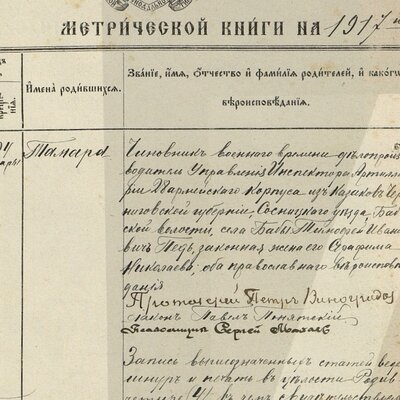 МЕТРИЧЕСКОЙ КНИГИ НА 1917
Имена родившихся.
Званіе, имя, отчество и фамилія родителей, и какого
вѣроисповѣданія.
Тамара
Чиновникъ военнаго времени дѣлопроиз-
водитель Управленія Инспектора Артилле-
ріи Армейскаго Корпуса изъ казаковъ Чер-
ниговской губерніи, Сосницкаго уѣзда, Баб-
ской волости, села Бабы Тимоѳей Ивано-
вичъ Педь, законная жена его Серафима
Николаева, оба православнаго вѣроиспов-
данія
Протоіерей Петръ Виноградовъ
Діаконъ Павелъ
Псаломщикъ Сергей
Запись вышеозначенныхъ статей
и печать въ цѣлости
въ чемъ